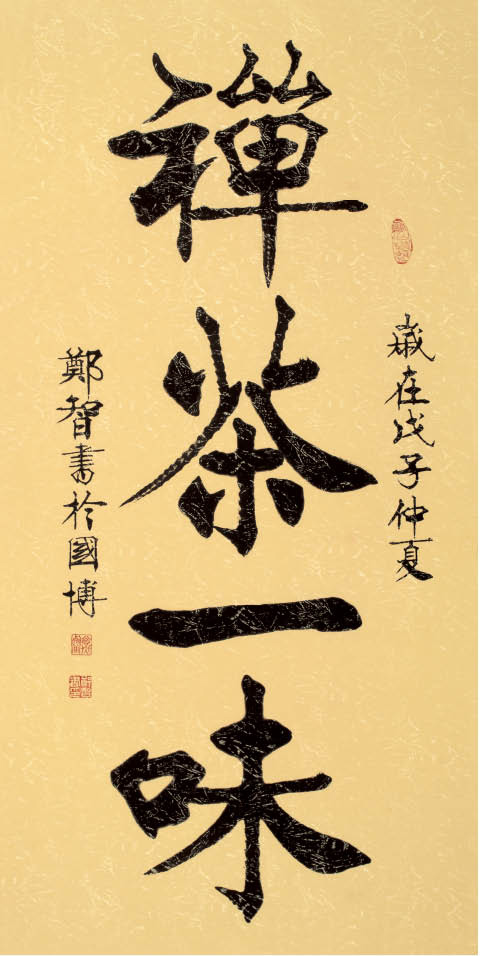 歲在戊子仲夏
禪茶一味
鄭智書於國博